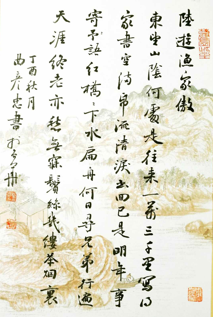 陸游漁家傲
東望山陰何處是往来一萬三千里寫得
家書空滿紙流清淚書回已是明年事
寄語紅橋橋下水扁舟何日尋兄弟行遍
天涯真老矣愁無寐鬢絲幾縷茶烟裏
丁酉秋月